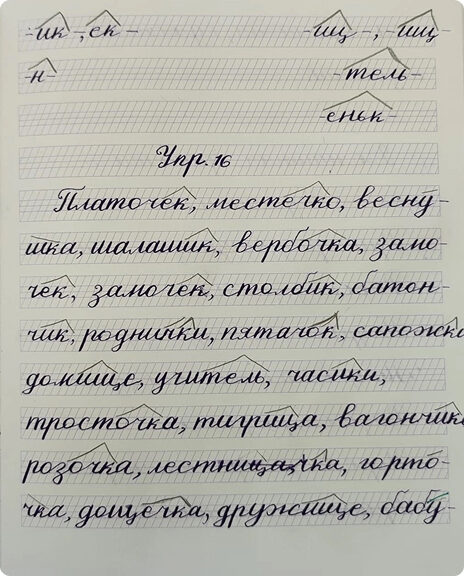 -ик-, -ек-   -ищ-, -ищ-
-н-   -тель-
-еньк-
Упр. 16
Платочек, местечко, весну-
шка, шалашик, вербочка, замо-
чек, замочек, столбик, батон-
чик, роднички, пятачок, сапожк
домище, учитель, часики,
тросточка, тигрица, вагончик
розочка, лестница, чка, горто-
чка, дощечка, дружище, бабу-